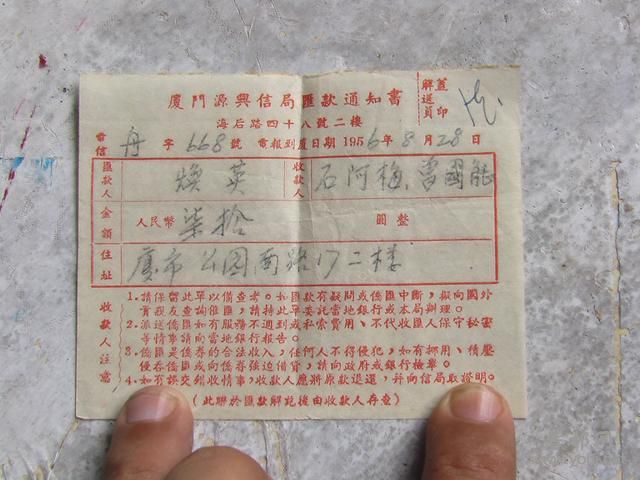 廈門源興信局匯款通知書
海后路四十八號二樓
解送員 蓋印
電信 丹 字 668 號 電報到廈日期 1956年8月28日
匯款人 煥英 收款人 石阿梅、曾國能
金額 人民幣 柒拾 圓整
住址 廈市公园南路17二楼
收款人注意
1. 請保留此單以備查考。如匯款有疑問或僑匯中斷，擬向國外
實親友查詢催匯，請持此單委託當地銀行或本局辦理。
2. 派送僑匯如有服務不週到或私索費用、不代收匯人保守秘密
等情事請向當地銀行報告。
3. 僑匯是僑眷的合法收入，任何人不得侵犯，如有挪用、積壓
侵吞僑匯或向僑眷強迫借貸，請向政府或銀行檢舉。
4. 如有誤交錯收情事，收款人應將原款退還，并向信局取證明。
（此聯於匯款解訖後由收款人存查）